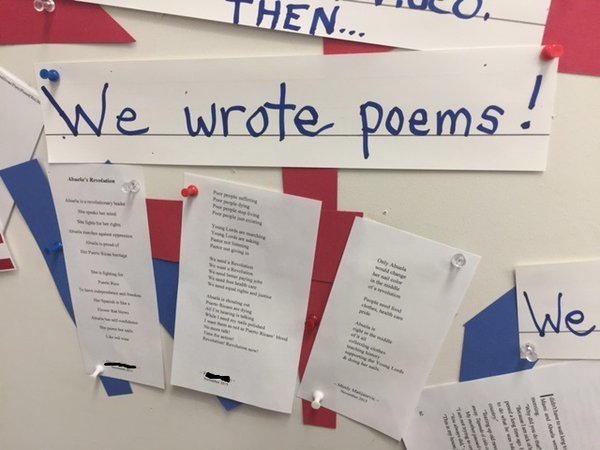 VIDEO.
THEN...
We wrote poems!
Abuela's Revolution
Abuela is a revolutionary leader
She speaks her mind
She fights for her rights
Abuela marches against oppression
Abuela is proud of
Her Puerto Rican heritage
She is fighting for
Puerto Rico
To have independence and freedom
Her Spanish is like a
Flower that blows
Abuela has self-confidence
She paints her nails
Like red wine
Poor people suffering
Poor people dying
Poor people stop living
Poor people just existing
Young Lords are marching
Young Lords are asking
Pastor not listening
Pastor not giving in
We need a Revolution
We want a Revolution
We need better paying jobs
We need free health care
We need equal rights and justice
Abuela is shouting out
Puerto Ricans are dying
All I'm hearing is talking
While I need my nails polished
I want them as red as Puerto Ricans' blood
No more talk!
Time for action!
Revolution! Revolution now!
November 2015
Only Abuela
would change
her nail color
in the middle
of a revolution
People need food
clothes, health care
pride
Abuela is
right in the
middle
of it all
collecting clothes
teaching history
supporting the Young Lords
& doing her nails.
November 2015
We